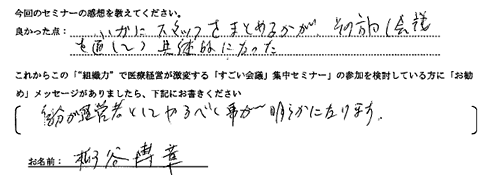 今回のセミナーの感想を教えてください。
良かった点： いかにスタッフをまとめるかが、その方法(会議
を通して)具体的になった
これからこの「"組織力"で医療経営が激変する「すごい会議」集中セミナー」の参加を検討している方に「お勧
め」メッセージがありましたら、下記にお書きください
自分が経営者としてやるべく事が明らかになります。
お名前：